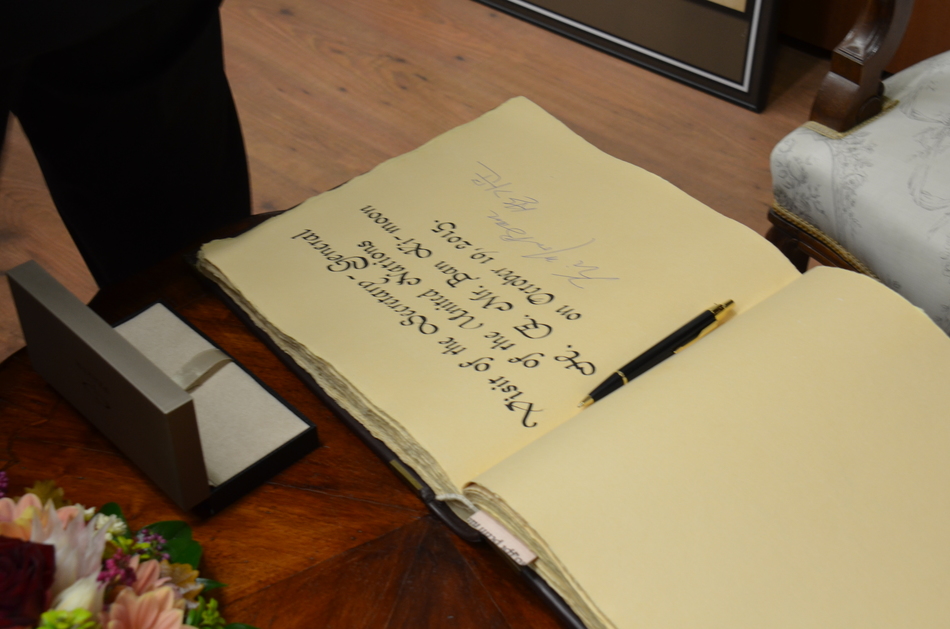 Visit of the Secretary-General
of the United Nations
H. E. Mr. Ban Ki-moon
on October 19, 2015.